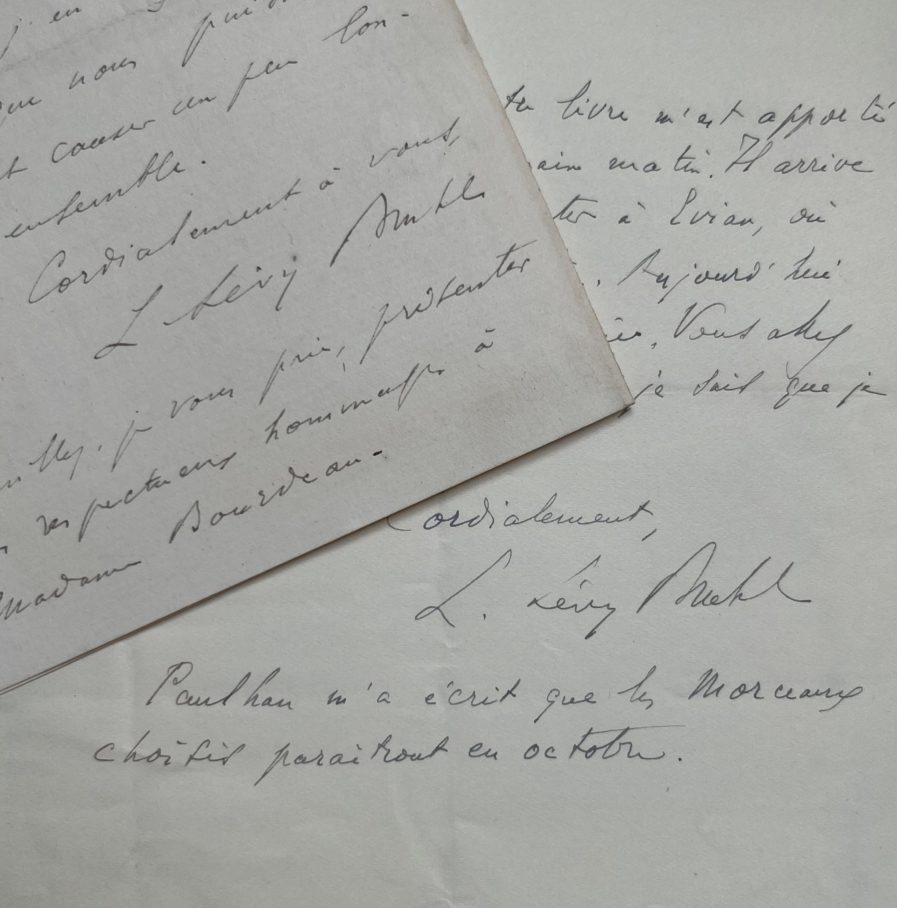 j'en
que nous
causer un peu lon-
ensemble.
Cordialement à vous,
L. Lévy Bruhl
je vous prie, présenter
respectueux hommages à
Madame Bourdeau.
livre m'est apporté
matin. Il arrive
à Evian, où
Aujourd'hui
Vous allez
je sais que je
Cordialement,
L. Lévy Bruhl
Paulhan m'a écrit que les Morceaux
choisis paraîtront en octobre.